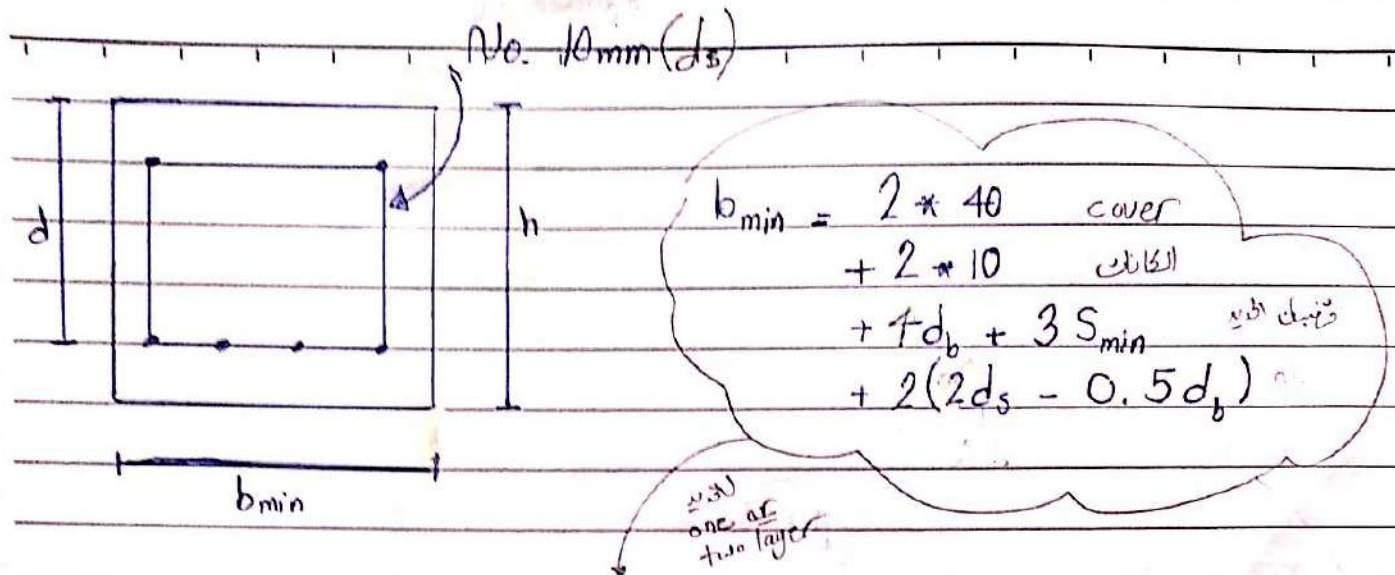 No. 10mm (ds)
d
h
b min
b min = 2 * 40 cover
+ 2 * 10 الكانات
+ 4 d b + 3 S min قضبان الحديد
+ 2 (2 d s - 0.5 d b)
one or
two layer